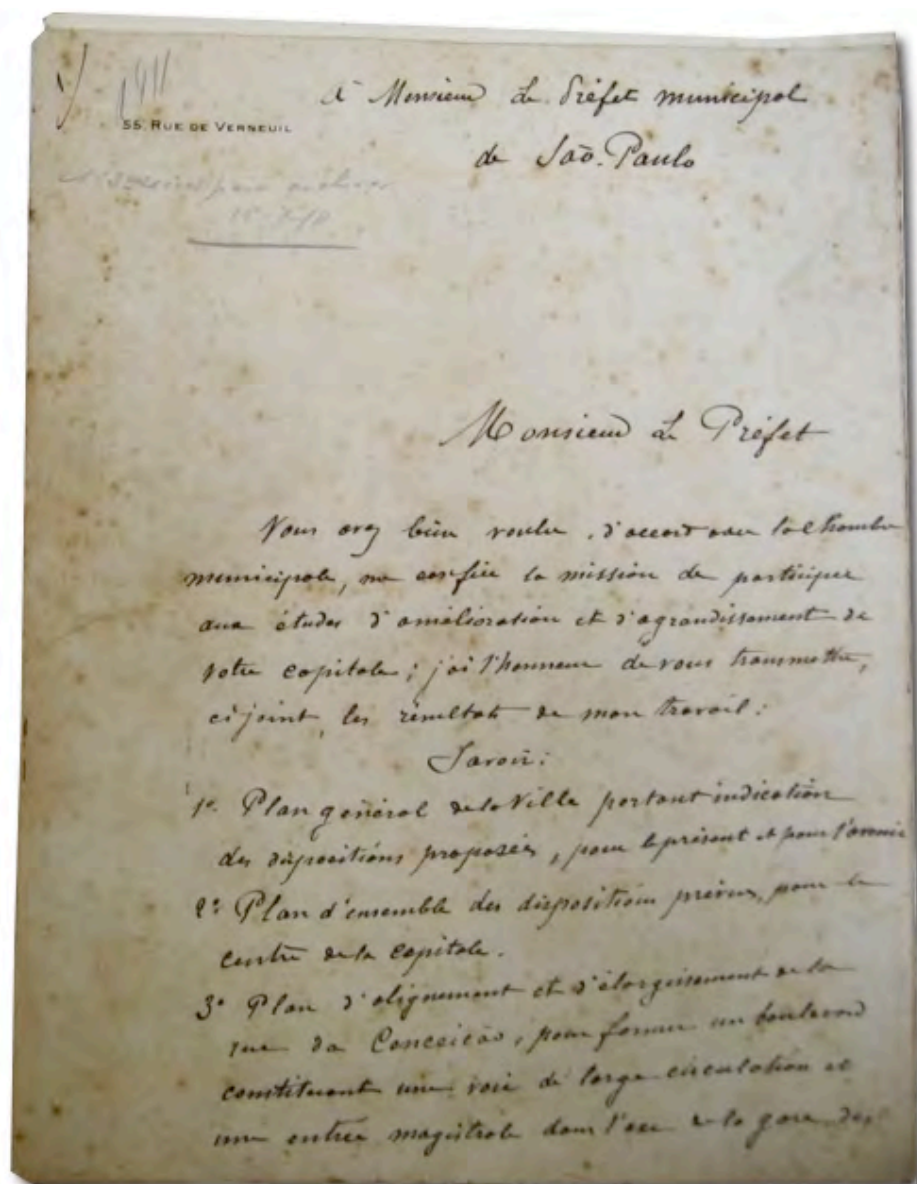 1911
À Monsieur Le Préfet municipal
55, RUE DE VERNEUIL
de Saõ-Paulo
Monsieur Le Préfet
Vous avez bien voulu, d'accord avec la Chambre
municipale, me confier la mission de participer
aux études d'amélioration et d'agrandissement de
votre capitale; j'ai l'honneur de vous transmettre,
ci joint, les résultats de mon travail:
Savoir:
1º. Plan général de la Ville portant indication
des dispositions proposées, pour le présent et pour l'avenir
2º: Plan d'ensemble des dispositions prévues, pour le
centre de la capitale.
3º Plan d'alignement et d'élargissement de la
rue da Conceicão, pour former un boulevard
constituant une voie de large circulation et
une entrée magistrale dans l'axe de la gare des